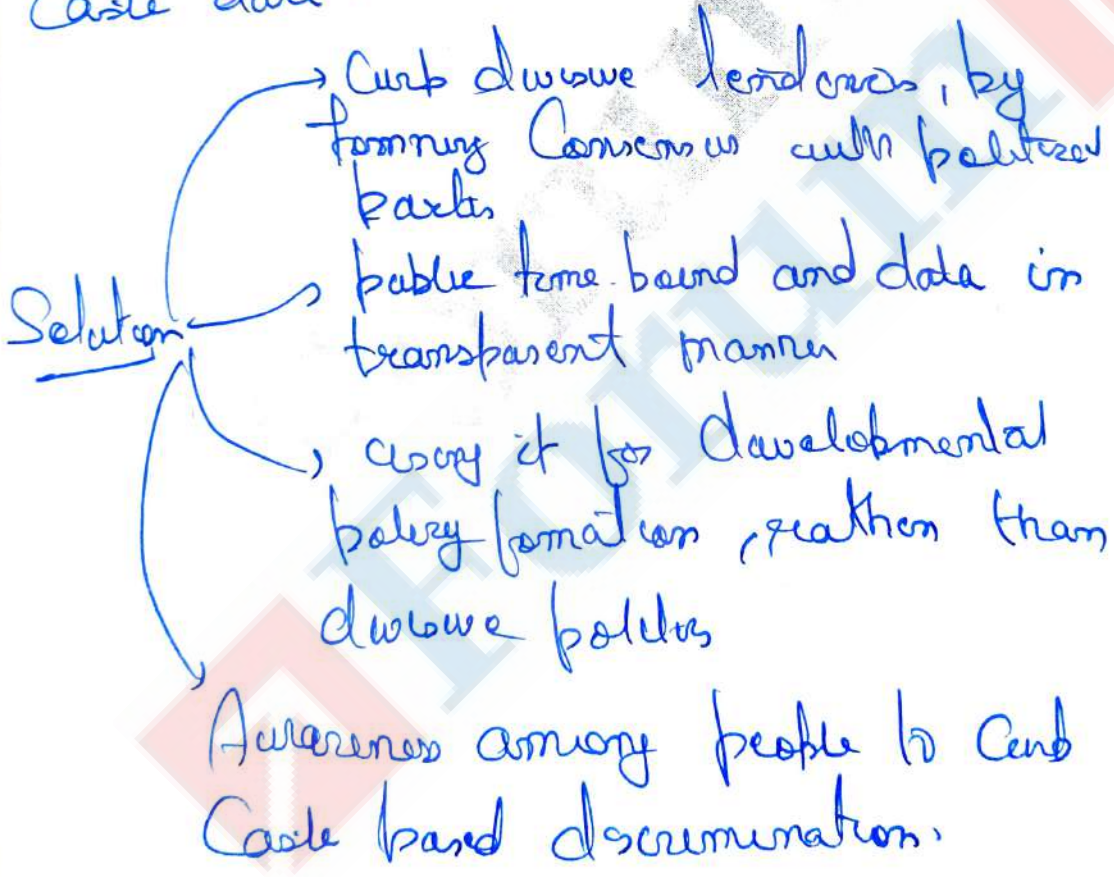 Caste data
→ Curb divisive tendencies, by
forming Consensus with political
parties
Solution
→ public time-bound and data in
transparent manner
→ using it for Developmental
policy formation, rather than
divisive politics
Awareness among people to curb
Caste based discrimination.
Forum